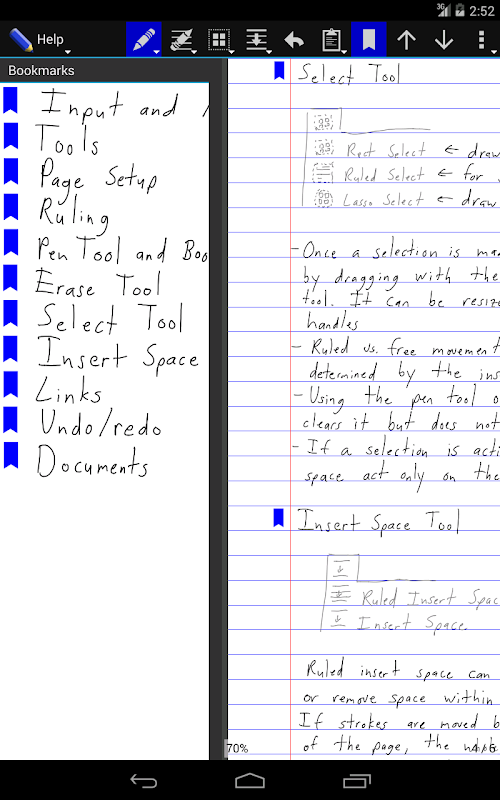 3G 2:52
Help
Bookmarks
Input and
Tools
Page Setup
Ruling
Pen Tool and Boo
Erase Tool
Select Tool
Insert Space
Links
Undo/redo
Documents
Select Tool
Rect Select ← draw
Ruled Select ← for
Lasso Select ← draw
- Once a selection is mad
by dragging with the
tool. It can be resize
handles
- Ruled vs. free movement
determined by the ins
- Using the pen tool o
clears it but does not
- If a selection is acti
space act only on the
Insert Space Tool
Ruled Insert Spac
Insert Space
Ruled insert space can
or remove space within
If strokes are moved b
of the page, the
70%